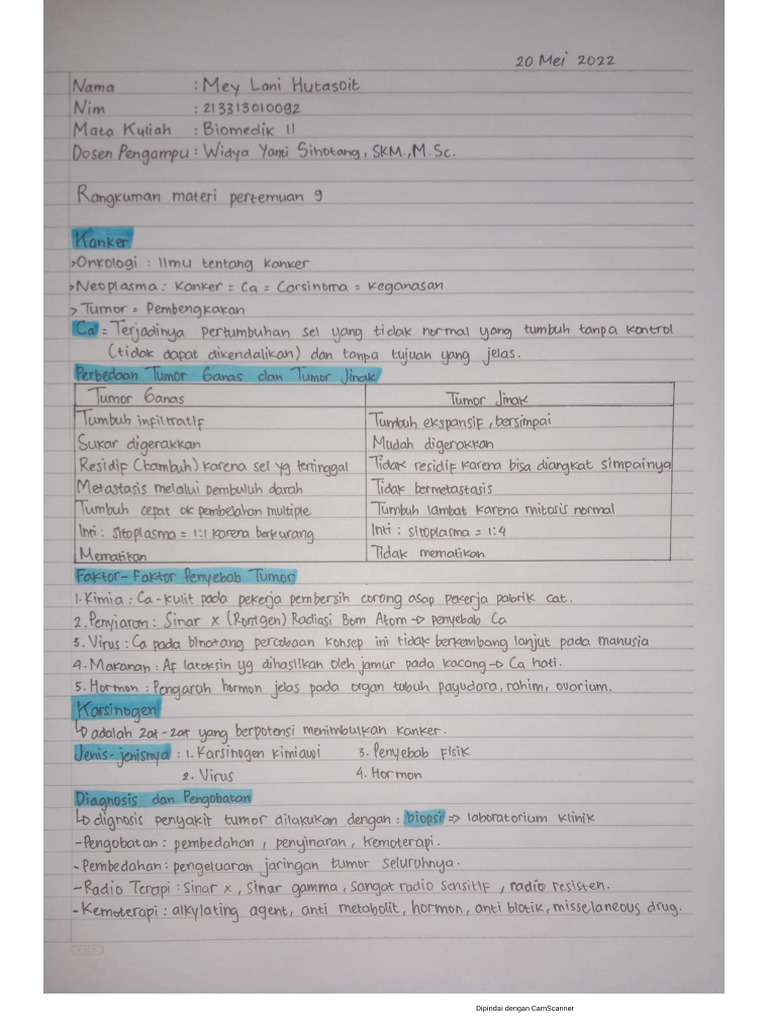 20 Mei 2022
Nama : Mey Lani Hutasoit
Nim : 213313010092
Mata Kuliah : Biomedik II
Dosen Pengampu : Widya Yanti Sihotang, SKM., M.Sc.
Rangkuman materi pertemuan 9
Kanker
>Onkologi : Ilmu tentang kanker
>Neoplasma : Kanker = Ca = Corsinoma = keganasan
>Tumor = Pembengkakan
Ca = Terjadinya pertumbuhan sel yang tidak normal yang tumbuh tanpa kontrol
(tidak dapat dikendalikan) dan tanpa tujuan yang jelas.
Perbedaan Tumor Ganas dan Tumor Jinak
Tumor Ganas Tumor Jinak
Tumbuh infiltratif Tumbuh ekspansif, bersimpai
Sukar digerakkan Mudah digerakkan
Residif (kambuh) karena sel yg tertinggal Tidak residif karena bisa diangkat simpainya
Metastasis melalui pembuluh darah Tidak bermetastasis
Tumbuh cepat ok pembelahan multiple Tumbuh lambat karena mitosis normal
Inti : sitoplasma = 1:1 karena berkurang Inti : sitoplasma = 1:4
Mematikan Tidak mematikan
Faktor-Faktor Penyebab Tumor
1. Kimia : Ca-kulit pada pekerja pembersih corong asap pekerja pabrik cat.
2. Penyiaram : Sinar x (Rontgen) Radiasi Bom Atom → penyebab Ca
3. Virus : Ca pada binatang percobaan konsep ini tidak berkembang lanjut pada manusia
4. Makanan : Af latoksin yg dihasilkan oleh jamur pada kacang → Ca hati.
5. Hormon : Pengaruh hormon jelas pada organ tubuh payudara, rahim, ovarium.
Karsinogen
↳ adalah zat-zat yang berpotensi menimbulkan kanker.
Jenis-jenisnya : 1. Karsinogen kimiawi 3. Penyebab fisik
2. Virus 4. Hormon
Diagnosis dan Pengobatan
↳ dignosis penyakit tumor dilakukan dengan : biopsi ⇒ laboratorium klinik
-Pengobatan : pembedahan, penyinaran, kemoterapi.
-Pembedahan : pengeluaran jaringan tumor seluruhnya.
-Radio Terapi : sinar x, sinar gamma, sangat radio sensitif, radio resisten.
-Kemoterapi : alkylating agent, anti metabolit, hormon, anti biotik, misselaneous drug.
Dipindai dengan CamScanner